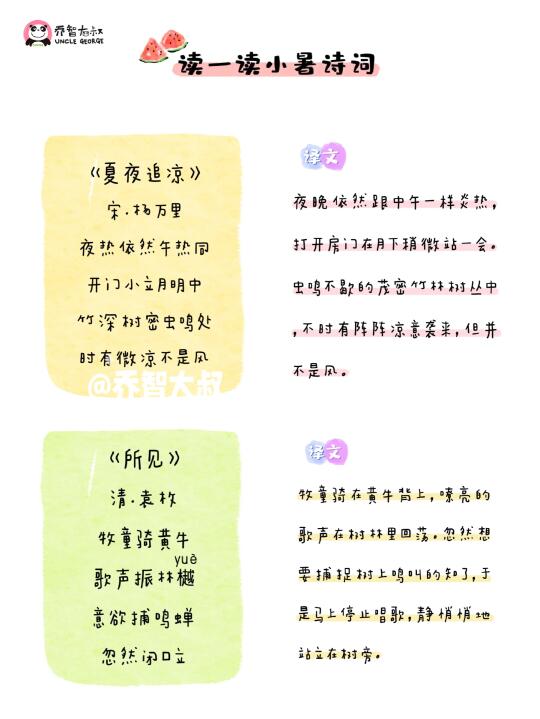 乔智大叔
UNCLE GEORGE
读一读小暑诗词
《夏夜追凉》
宋.杨万里
夜热依然午热同
开门小立月明中
竹深树密虫鸣处
时有微凉不是风
@乔智大叔
译文
夜晚依然跟中午一样炎热，
打开房门在月下稍微站一会。
虫鸣不歇的茂密竹林树丛中
，不时有阵阵凉意袭来，但并
不是风。
《所见》
清.袁枚
牧童骑黄牛
yuè
歌声振林樾
意欲捕鸣蝉
忽然闭口立
译文
牧童骑在黄牛背上，嘹亮的
歌声在树林里回荡。忽然想
要捕捉树上鸣叫的知了，于
是马上停止唱歌，静悄悄地
站立在树旁。